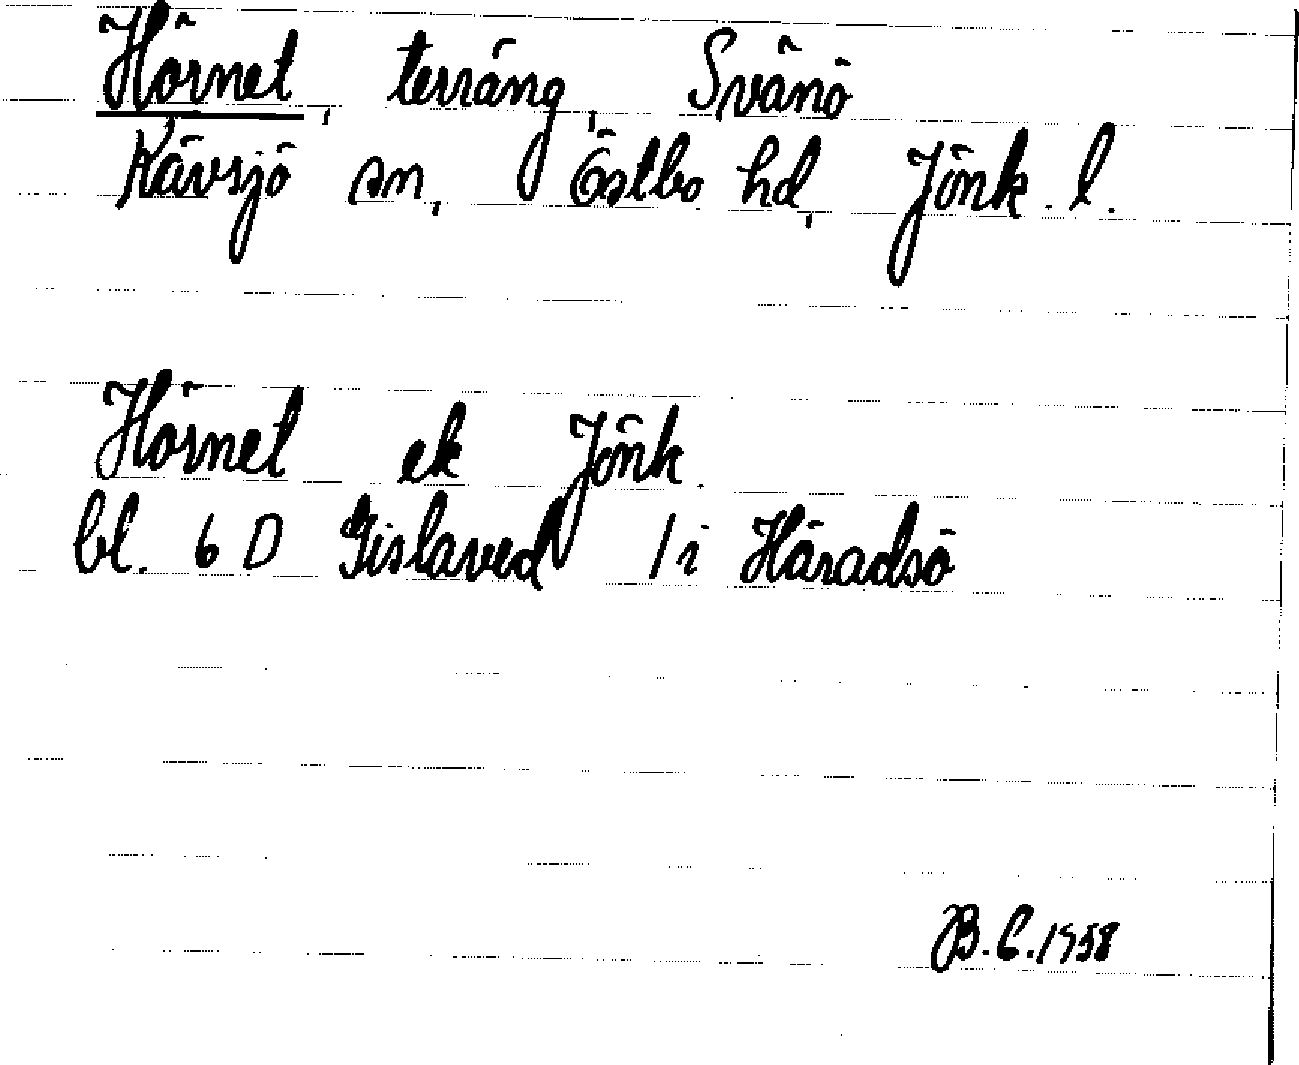 Hörnet, terräng, Svänö
Kävsjö sn, Östbo hd, Jönk. l.
Hörnet ek Jönk.
bl. 6 D Gislaved 1 i Häradsö
B.C. 1958